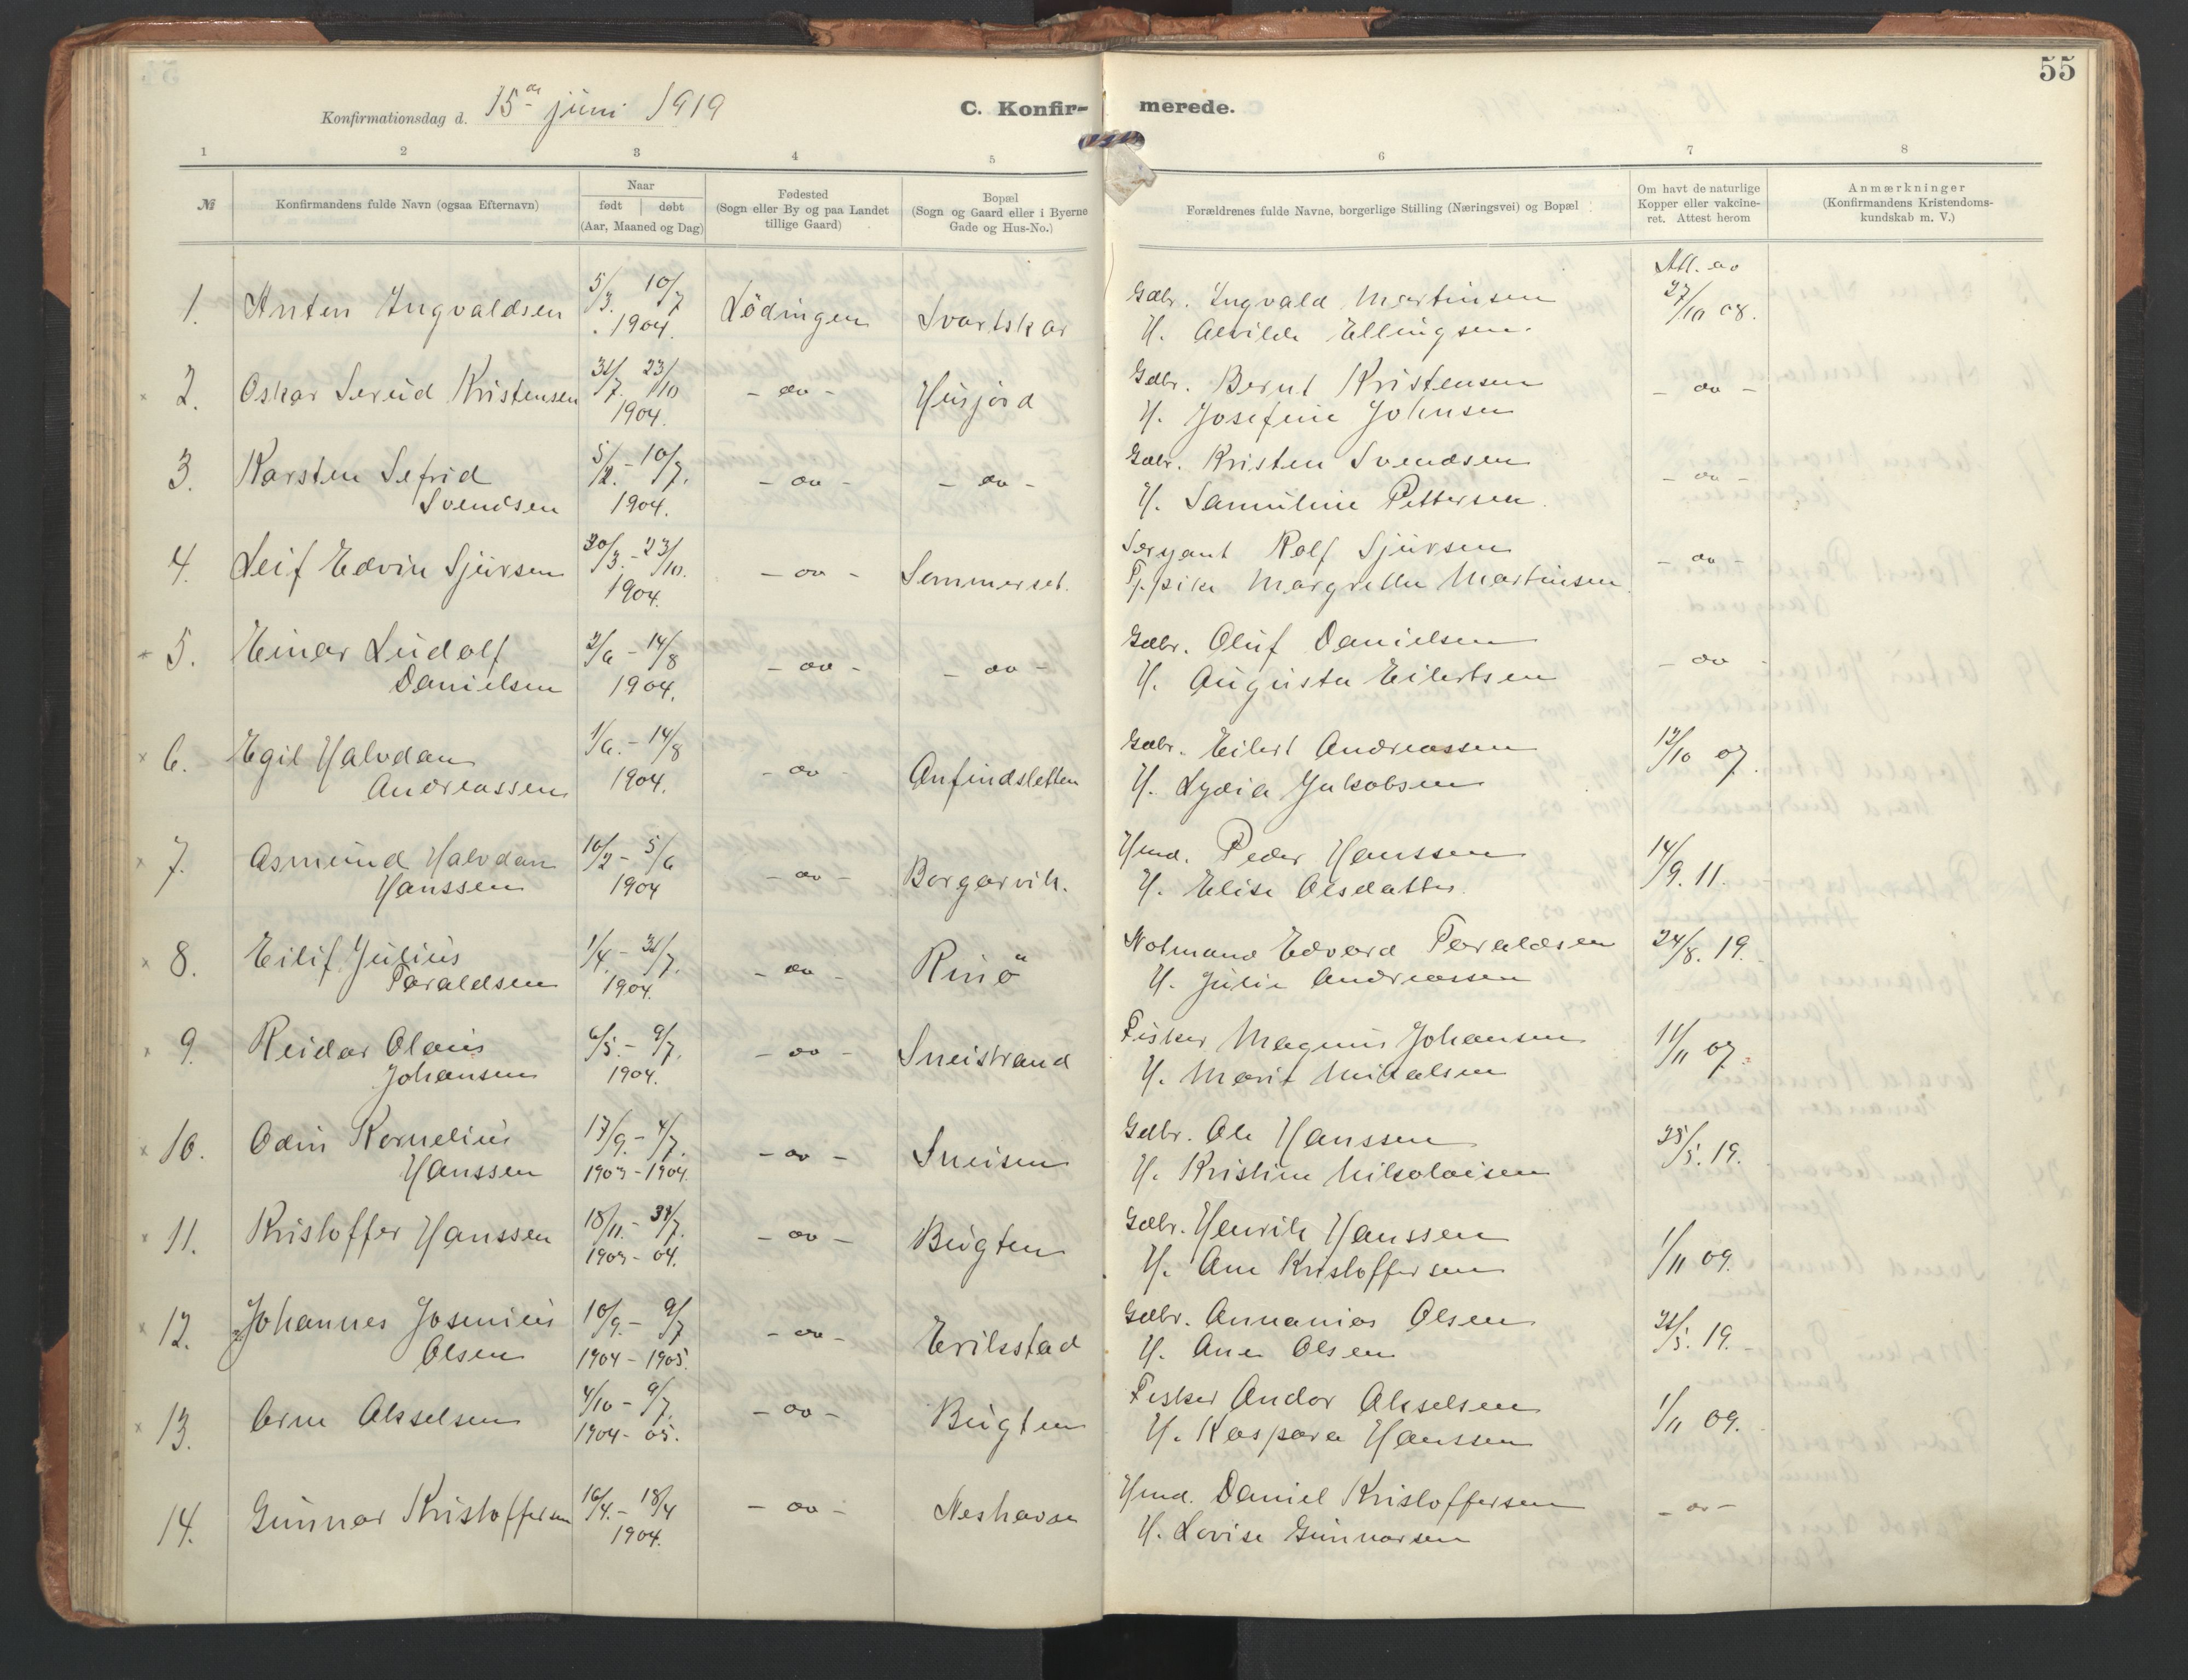 55
Konfirmationsdag d. 15de juni 1919
C. Konfir-
merede.
1 2 3 4 5 6 7 8
№
Konfirmandens fulde Navn (ogsaa Efternavn)
Naar
født | døbt
(Aar, Maaned og Dag)
Fødested
(Sogn eller By og paa Landet
tillige Gaard)
Bopæl
(Sogn og Gaard eller i Byerne
Gade og Hus-No.)
Forældrenes fulde Navne, borgerlige Stilling (Næringsvei) og Bopæl
Om havt de naturlige
Kopper eller vakcine-
ret. Attest herom
Anmærkninger
(Konfirmandens Kristendoms-
kundskab m. V.)
1. Anten Ingvaldsen
5/3. 10/7
1904.
Lödingen
Svartskar
Gdbr. Ingvald Martinsen
H. Alvilde Ellingsen.
Att. av
27/10 08.
2. Oskar Kristensen
31/7. 23/10
1904.
- do -
Husjord
Gdbr. Bernt Kristensen
H. Josefine Johnsen
- do -
3. Karsten Sefrid
Svendsen
5/2. - 10/7.
1904.
- do -
- do -
Gdbr. Kristen Svendsen
H. Samuline Pettersen.
- do -
4. Leif Edvin Sjursen
30/3. - 23/10.
1904.
- do -
Sommerset.
Sersjant Rolf Sjursen
Margrethe Martinsen.
- do -
5. Einar Ludolf
Danielsen
2/6 - 14/8
1904.
- do -
- do -
Gdbr. Oluf Danielsen
H. Augusta Eilertsen
- do -
6. Egil Halvdan
Andreassen
1/6. - 14/8
1904.
- do -
Anfindsletten
Gdbr. Eilert Andreassen
H. Lydia Jakobsen
12/10 07.
7. Asmund Halvdan
Hanssen
16/2 - 5/6
1904
- do -
Borgarvik.
Hmd. Peder Hanssen
H. Elise Olsdatter.
14/9. 11.
8. Eilif Julius
Taraldsen
1/4. - 31/7.
1904.
- do -
Rinö
Notmand Edvard Taraldsen
H. Julie Andreassen
24/8. 19.
9. Reidar Olaus
Johansen
6/5. - 9/7.
1904.
- do -
Sneistrand
Fisker Magnus Johansen
H. Marit Mikalsen
11/11 07.
10. Odin Kornelius
Hanssen
17/9. - 4/7.
1903 - 1904.
- do -
Sneisen
Gdbr. Ole Hanssen
H. Kristine Nikolaisen
25/5. 19.
11. Kristoffer Hanssen
18/11. - 31/7.
1903 - 04.
- do -
Bugten
Gdbr. Henrik Hanssen
H. Ane Kristoffersen
1/11 09.
12. Johannes Josenius
Olsen
10/9. - 9/7
1904 - 1905.
- do -
Erikstad
Gdbr. Annanias Olsen
H. Ane Olsen
31/5. 19.
13. Arne Akselsen
4/10 - 9/7.
1904 - 05.
- do -
Bugten
Fisker Andor Akselsen
H. Kaspara Hanssen
1/11 09.
14. Gunnar Kristoffersen
16/4. - 18/4
1904.
- do -
Neshavn
Hmd. Daniel Kristoffersen
H. Lovise Gunnarsen
- do -